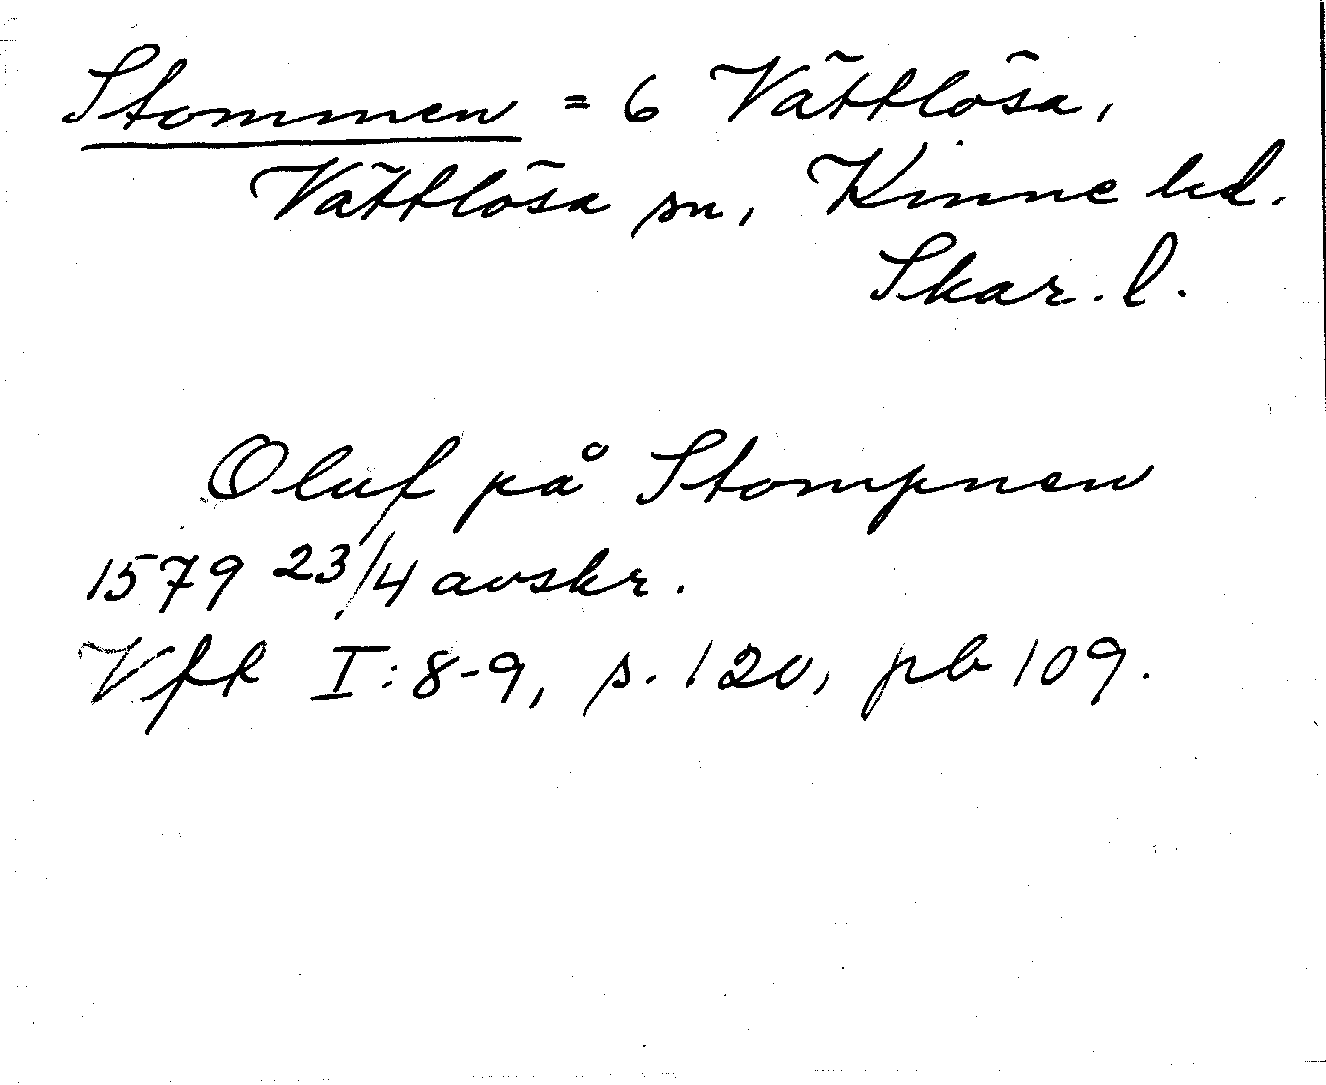 Stommen = 6 Vättlösa,
Vättlösa sn, Kinne hd.
Skar. l.
Oluf på Stompnen
1579 23/4 avskr.
Vfk I:8-9, s. 120, pb 109.